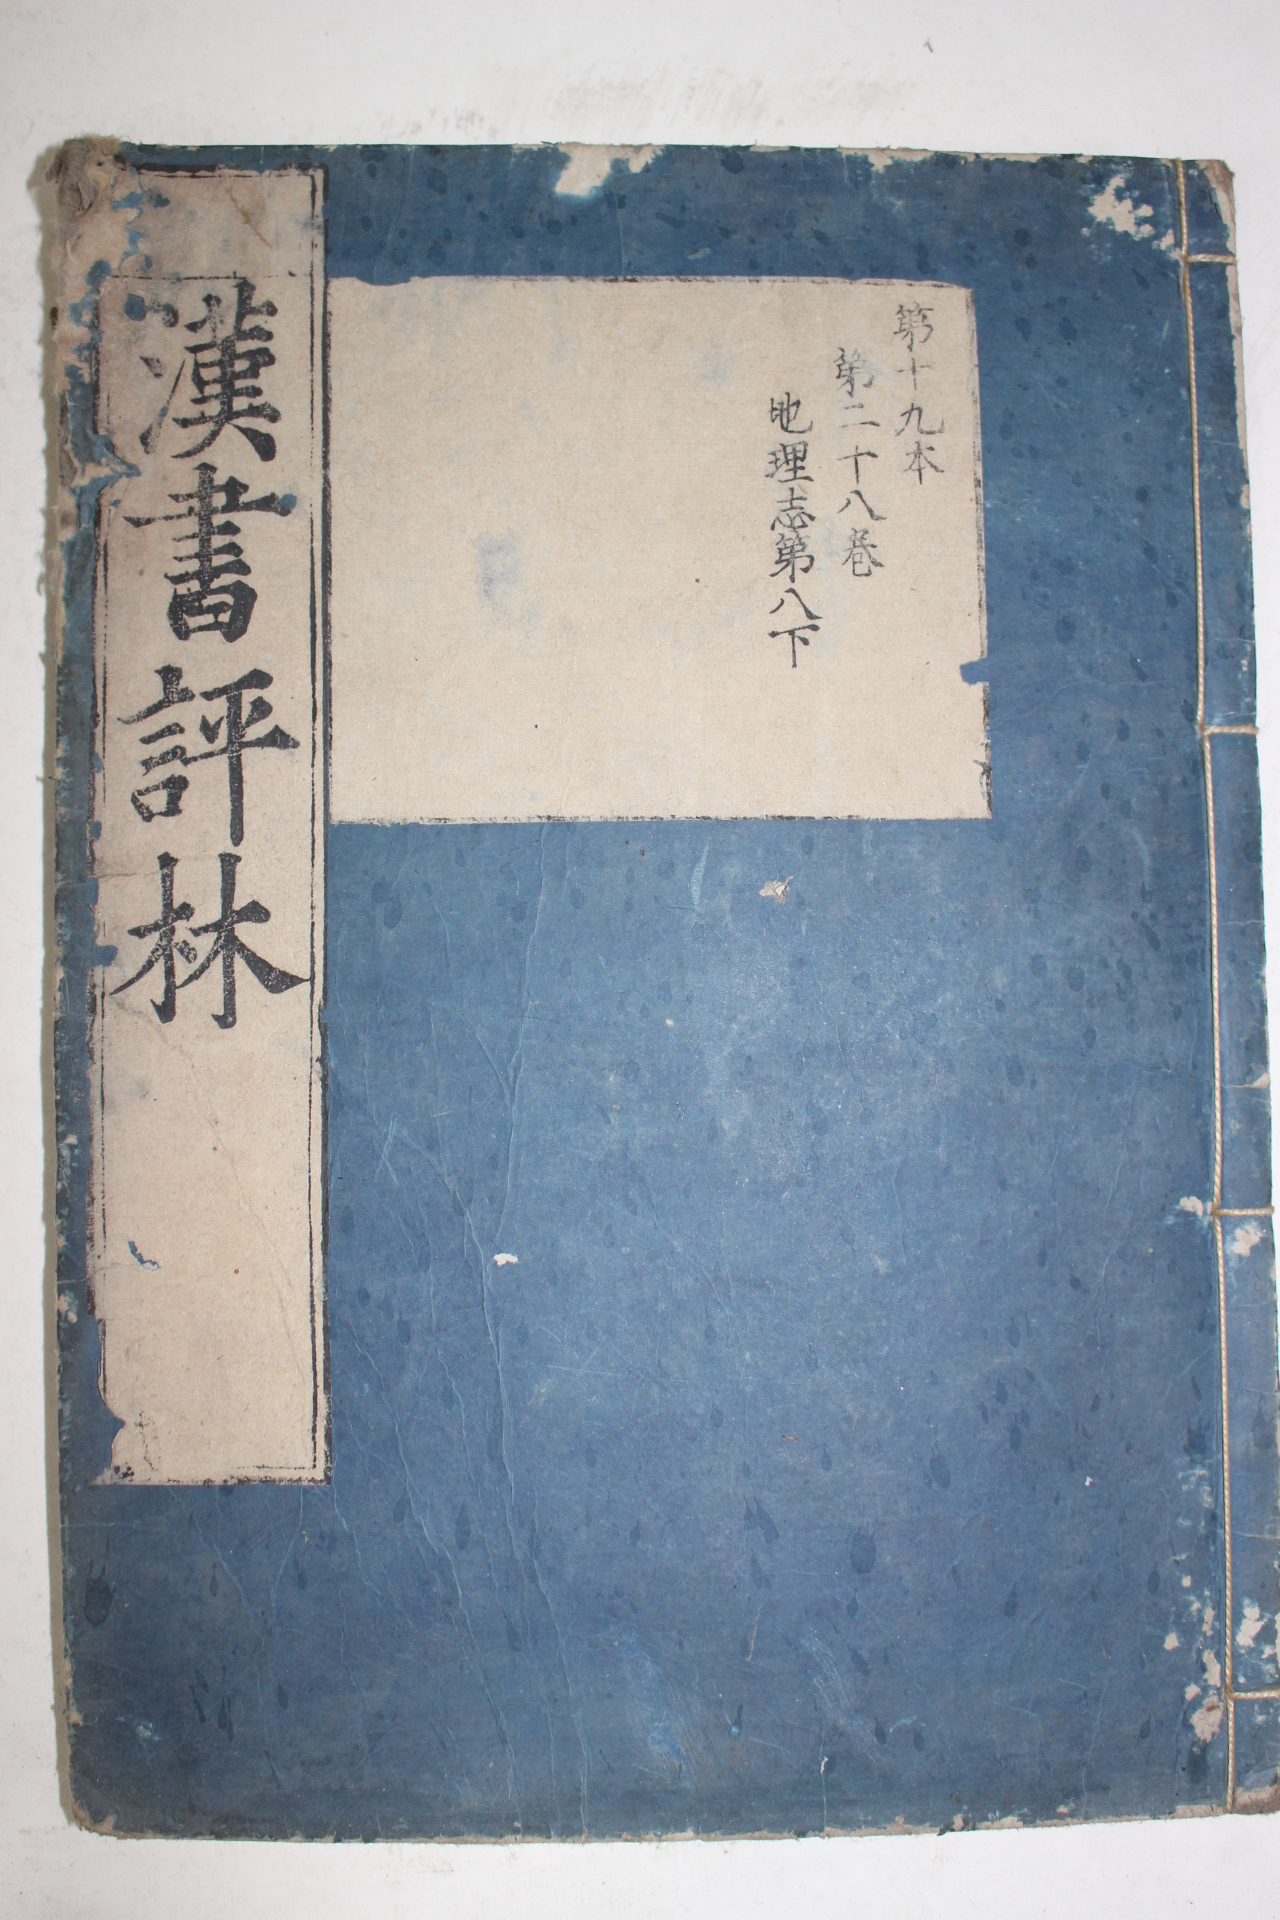 第十九本
第二十八巻
地理志第八下
漢書評林